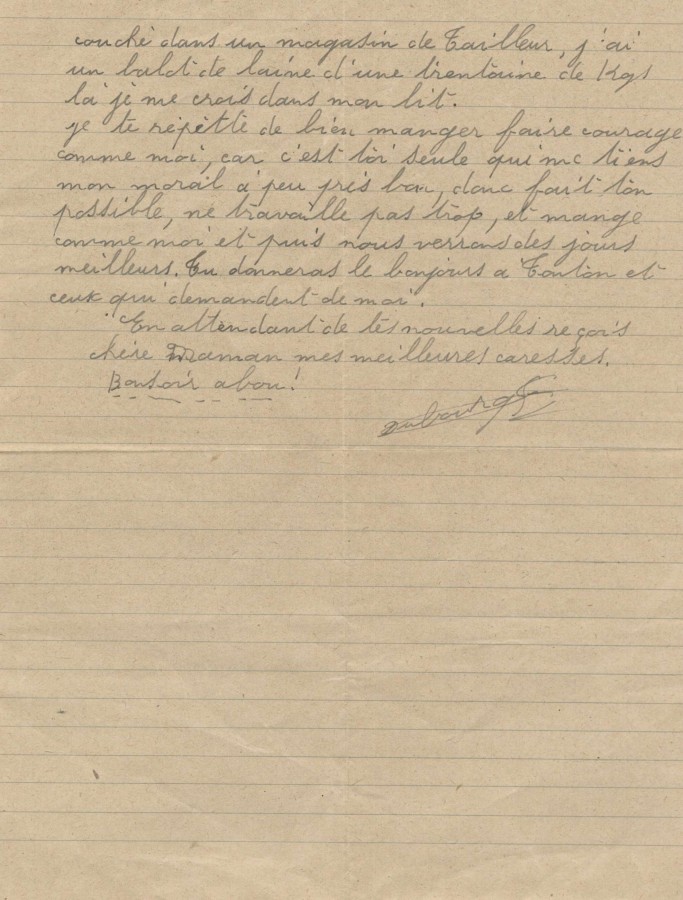 couché dans un magasin de Tailleur, j'ai
un balot de laine d'une trentaine de Kgs
là je me crois dans mon lit.
je te répètte de bien manger faire courage
comme moi, car c'est toi seule qui me tiens
mon morail a peu près bon, donc fait ton
possible, ne travaille pas trop, et mange
comme moi et puis nous verrons des jours
meilleurs. Tu donneras le bonjours a Tonton et
ceux qui demandent de moi.
En attendant de tes nouvelles reçois
chère Maman mes meilleures caresses.
Bonsoir abou!